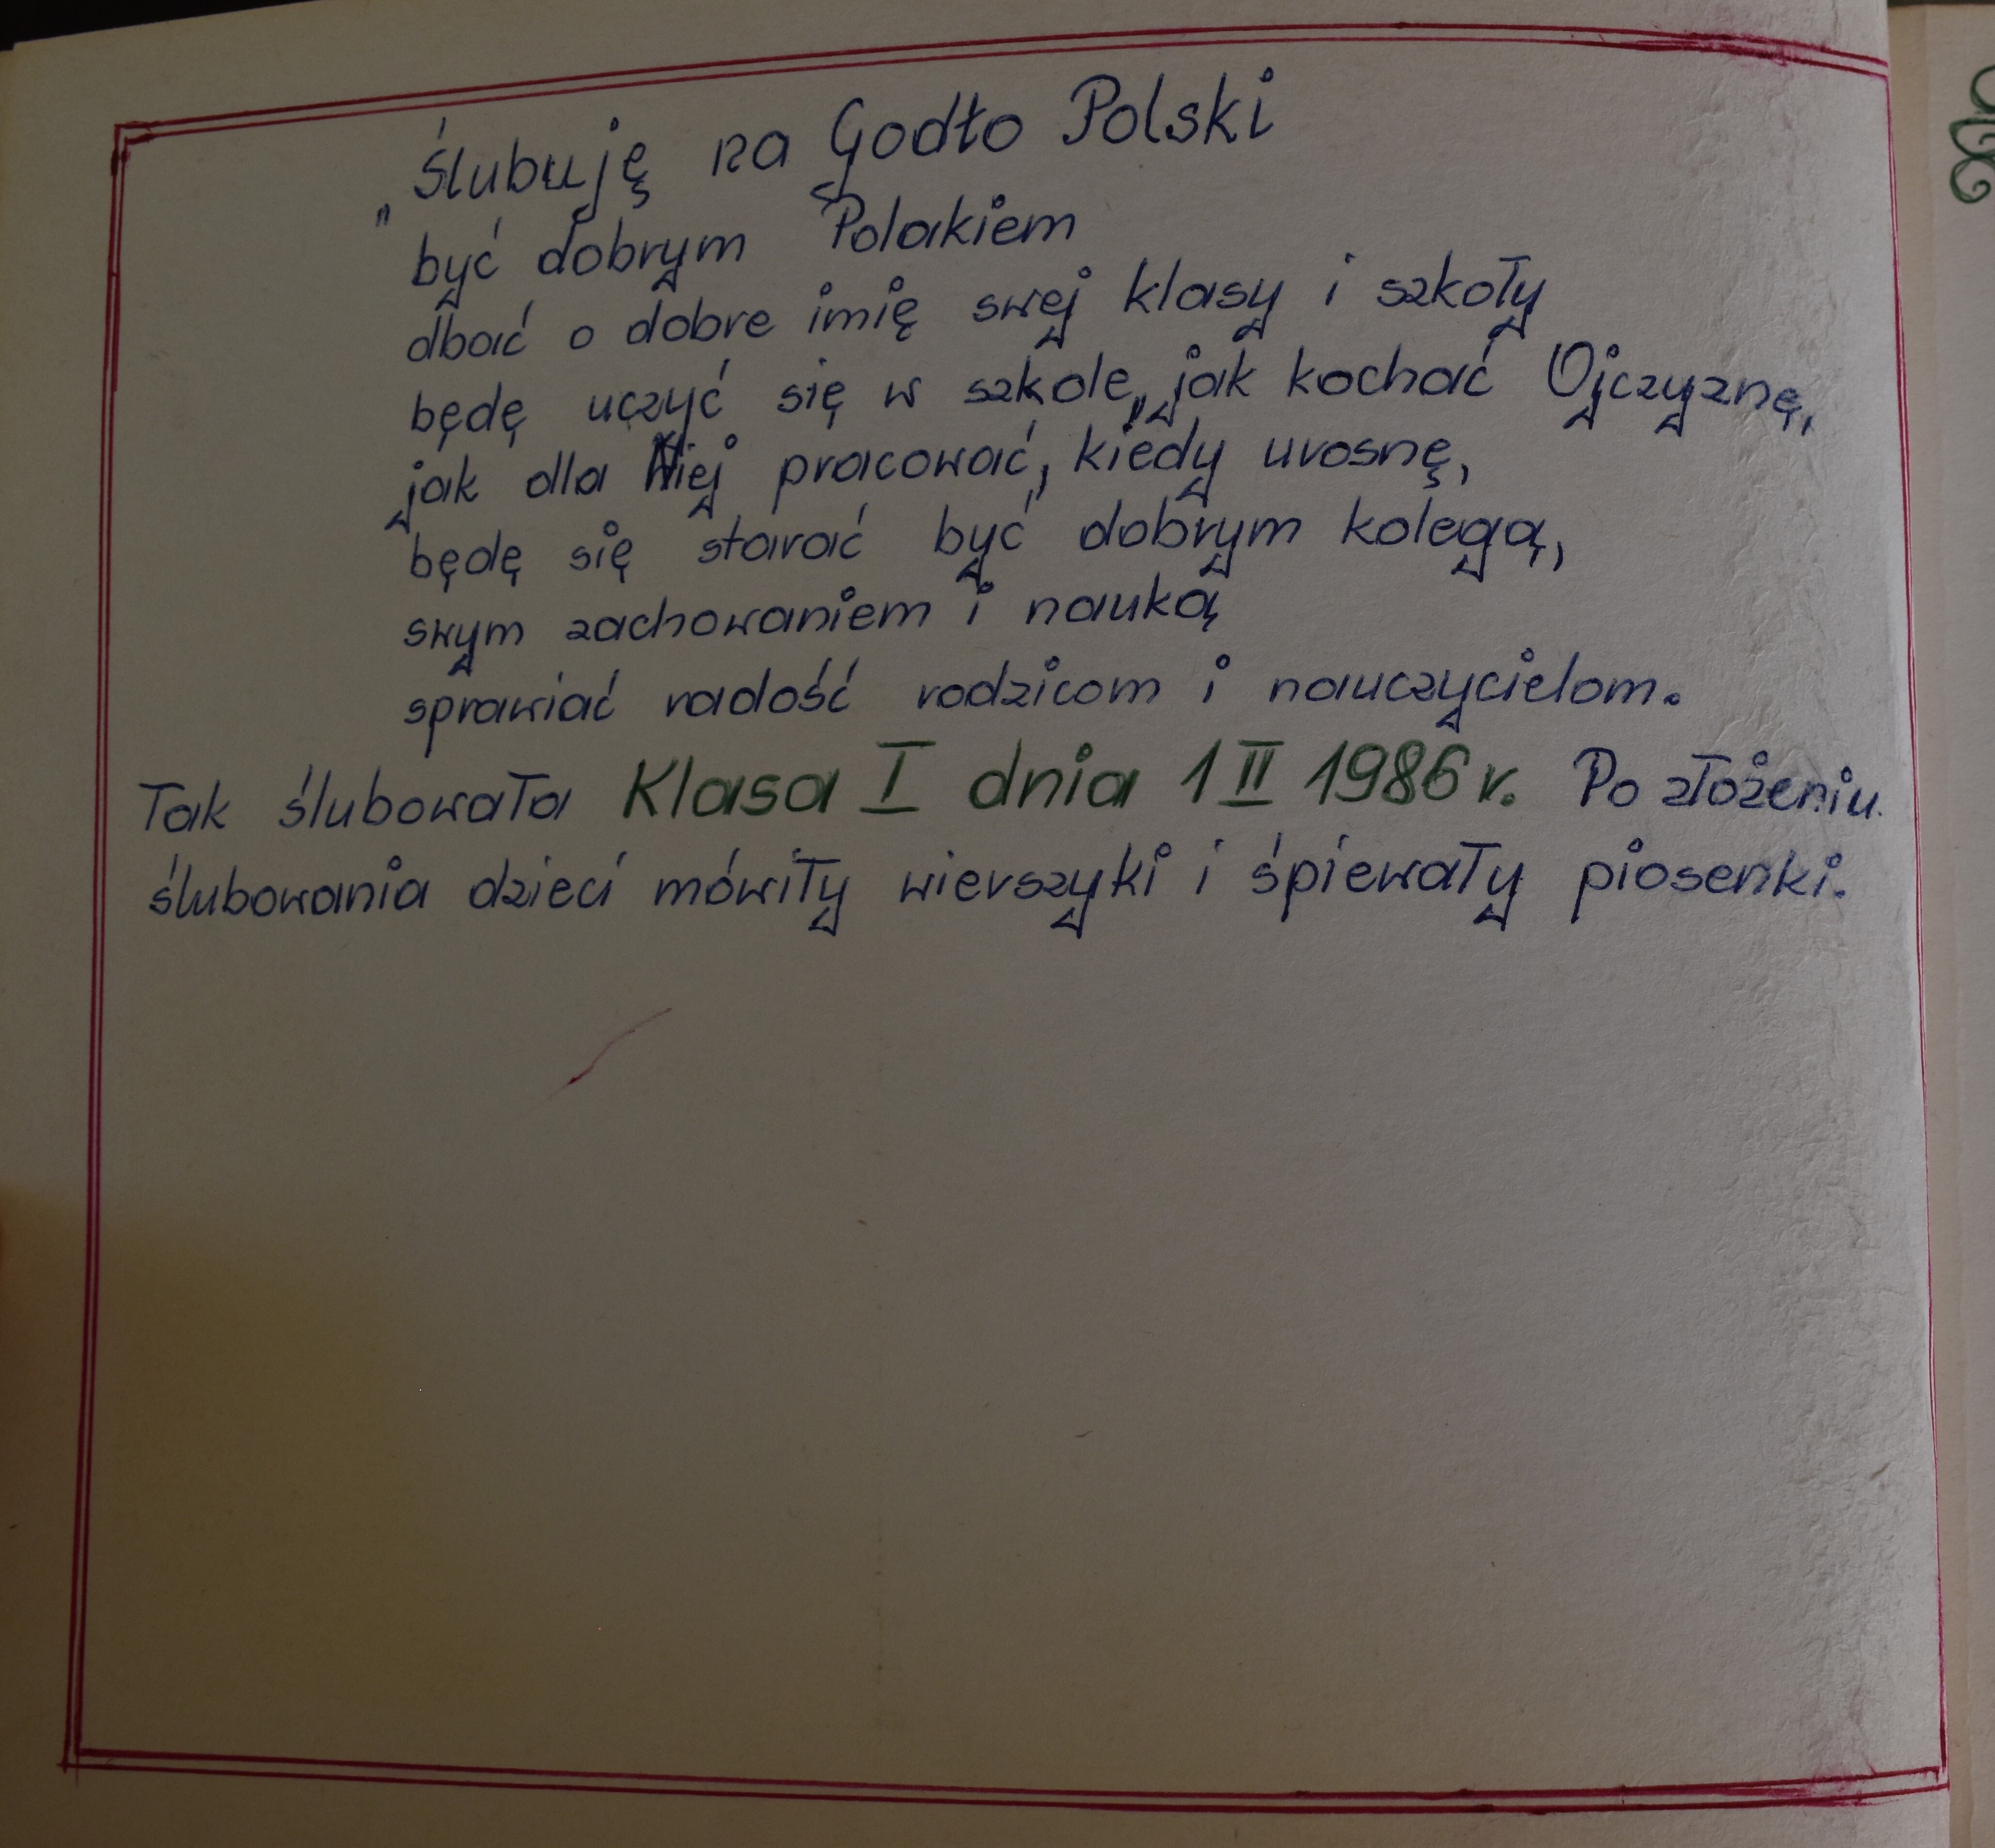 „Ślubuję na Godło Polski
być dobrym Polakiem
dbać o dobre imię swej klasy i szkoły
będę uczyć się w szkole„jak kochać Ojczyznę,
jak dla Niej pracować, kiedy urosnę,
będę się starać być dobrym kolegą,
swym zachowaniem i nauką
sprawiać radość rodzicom i nauczycielom.
Tak ślubowała Klasa I dnia 1 II 1986 r. Po złożeniu
ślubowania dzieci mówiły wierszyki i śpiewały piosenki.